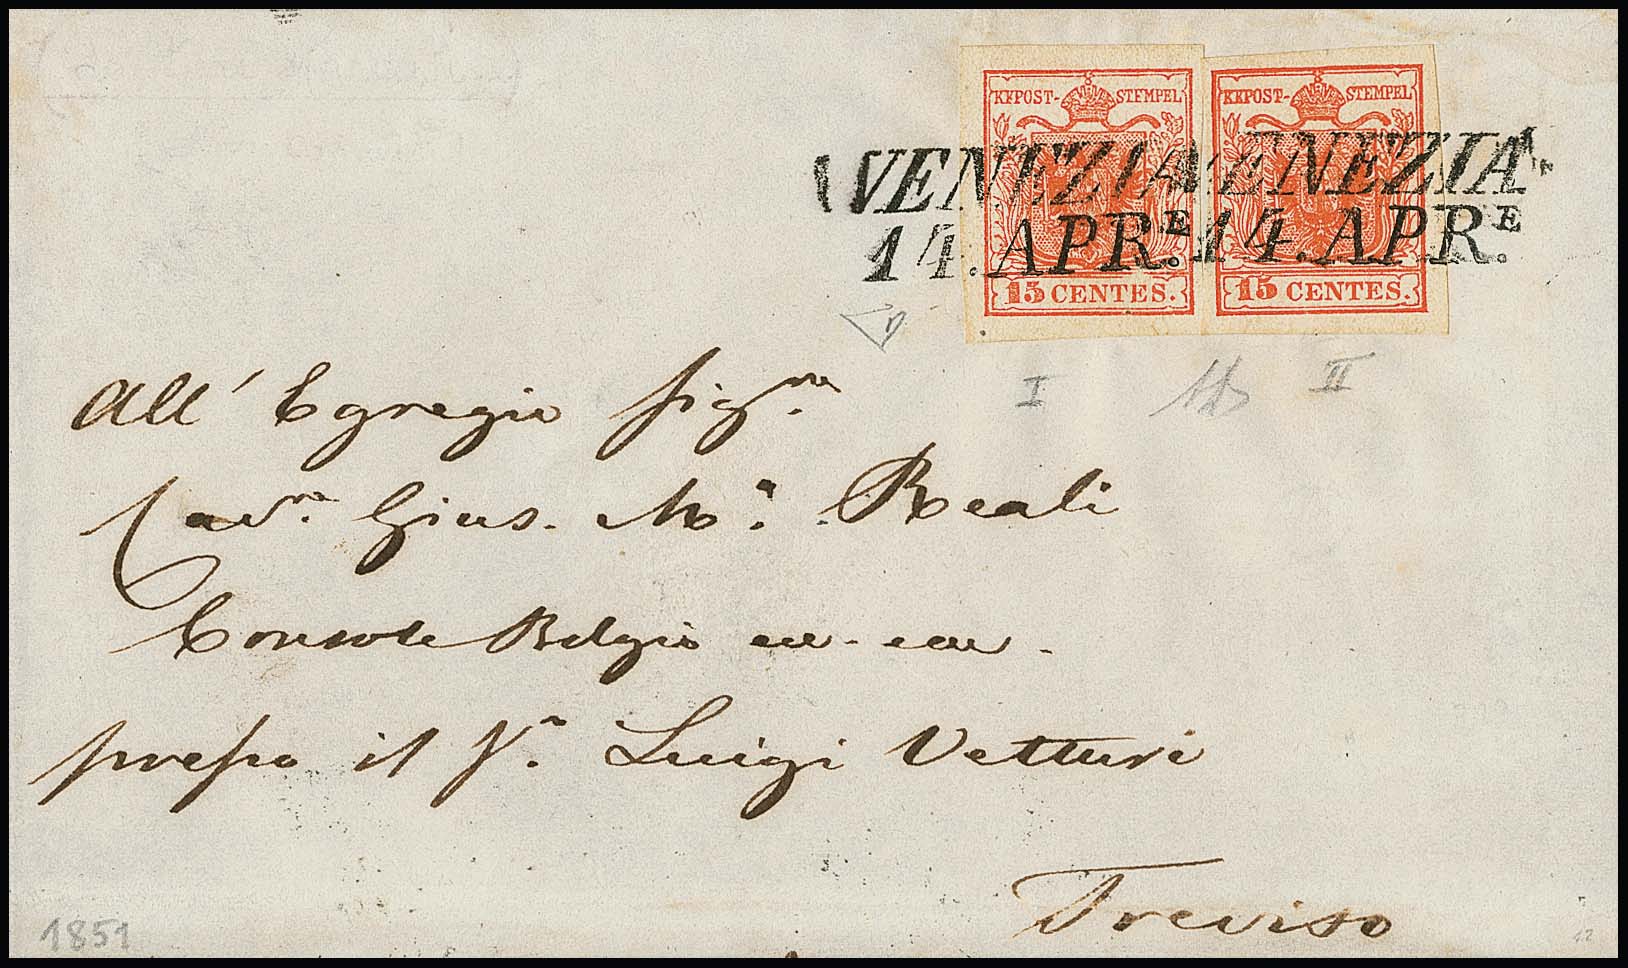 KKPOST-STEMPEL KKPOST-STEMPEL
VENEZIA VENEZIA
14. APR.E 14. APR.E
15 CENTES. 15 CENTES.
I II
All' Egregio Sigr.
Cavre. Gius. Ma. Reali
Console Belgio
presso il Luigi Vetturi
Treviso
1851
12